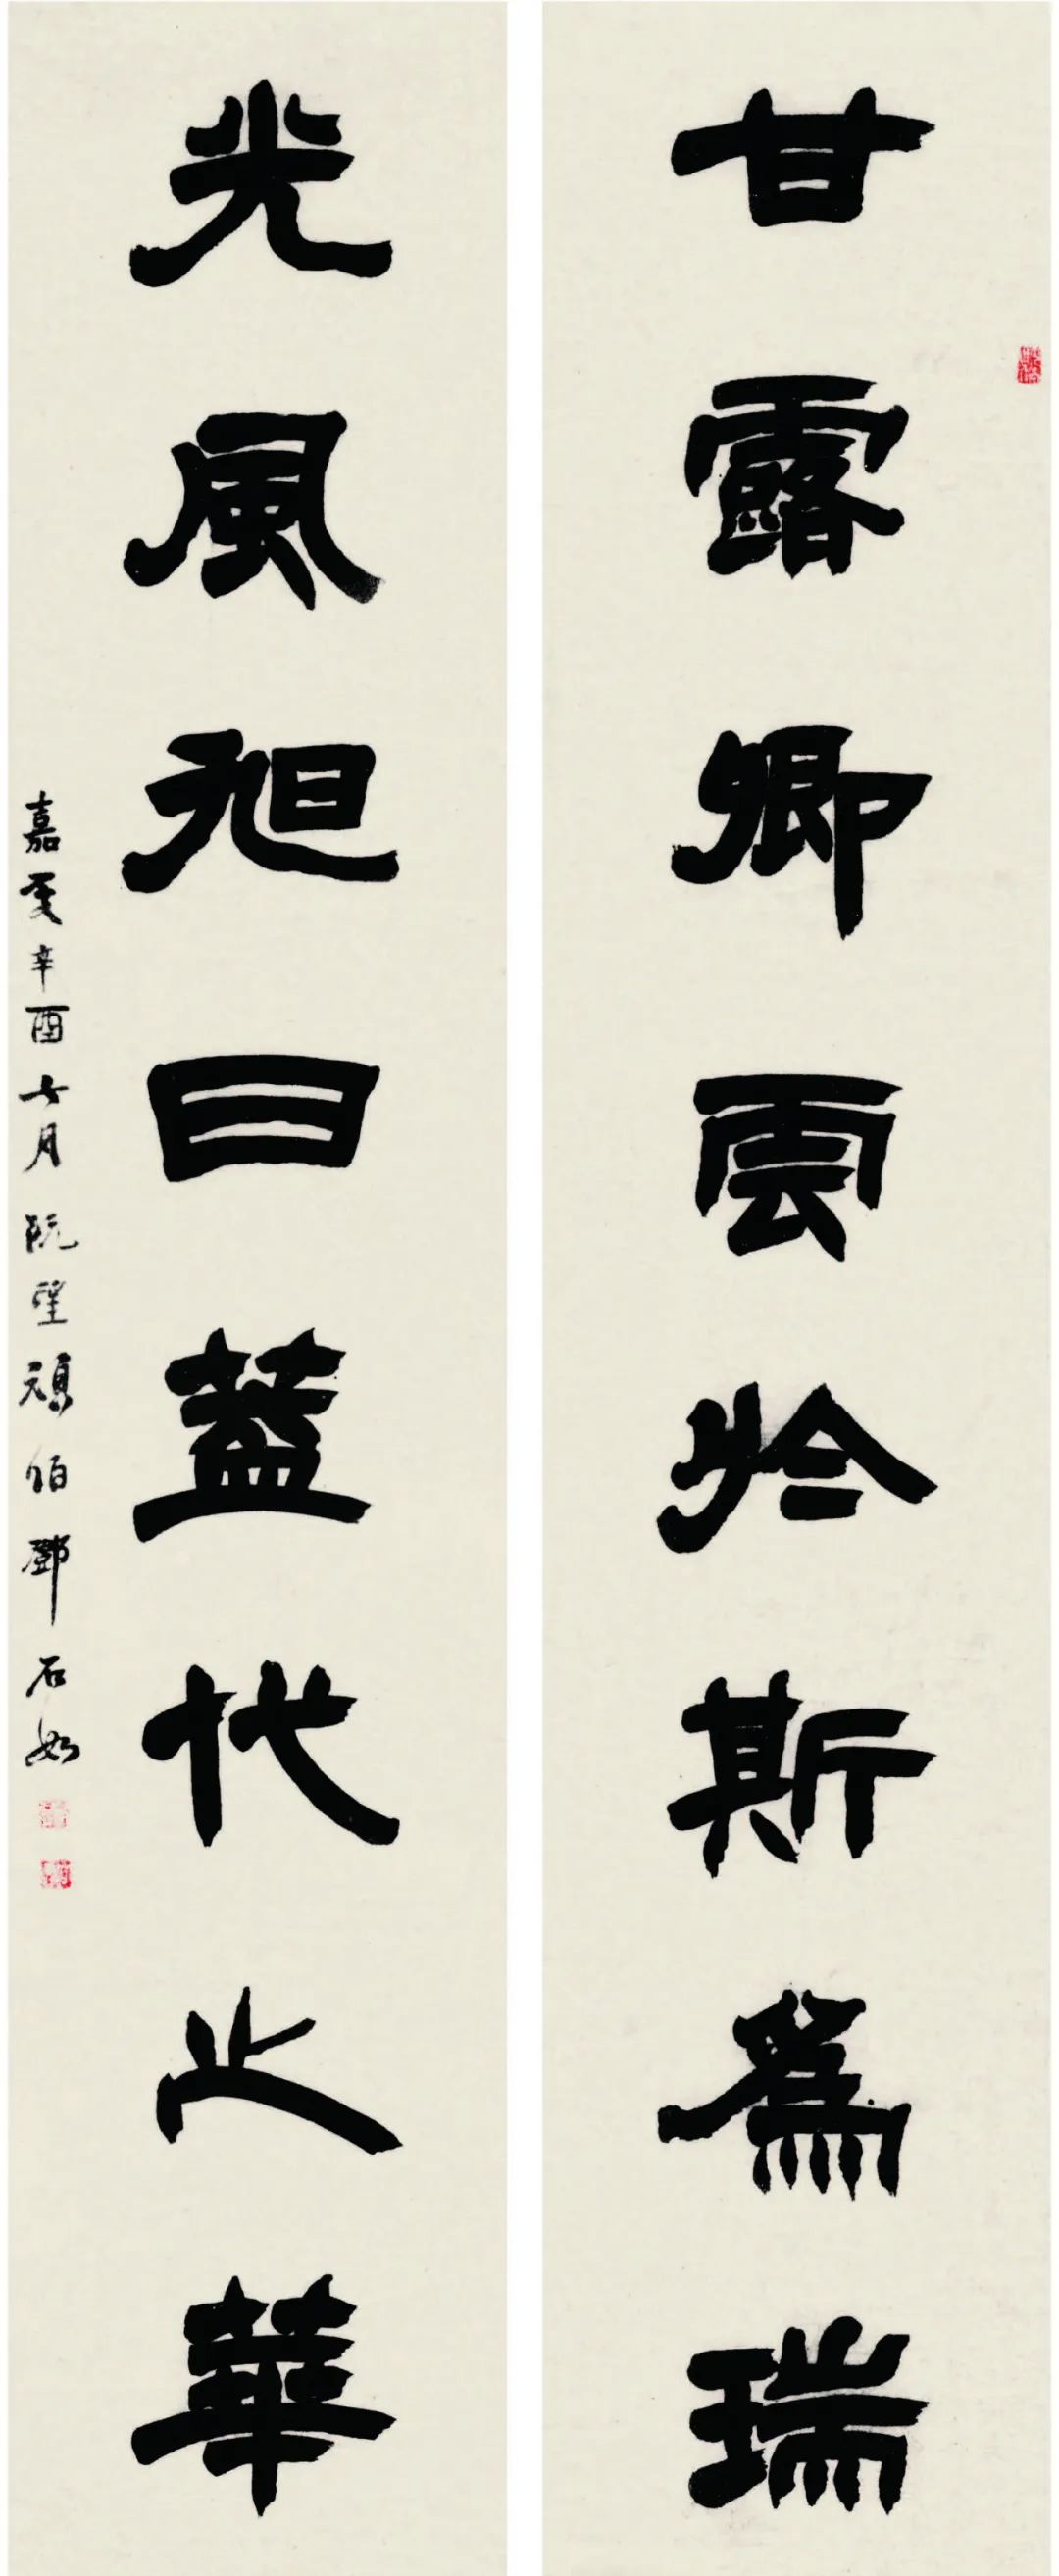 甘露卿雲於斯爲瑞
光風旭日蓋代之華
嘉慶辛酉七月皖望頑伯鄧石如